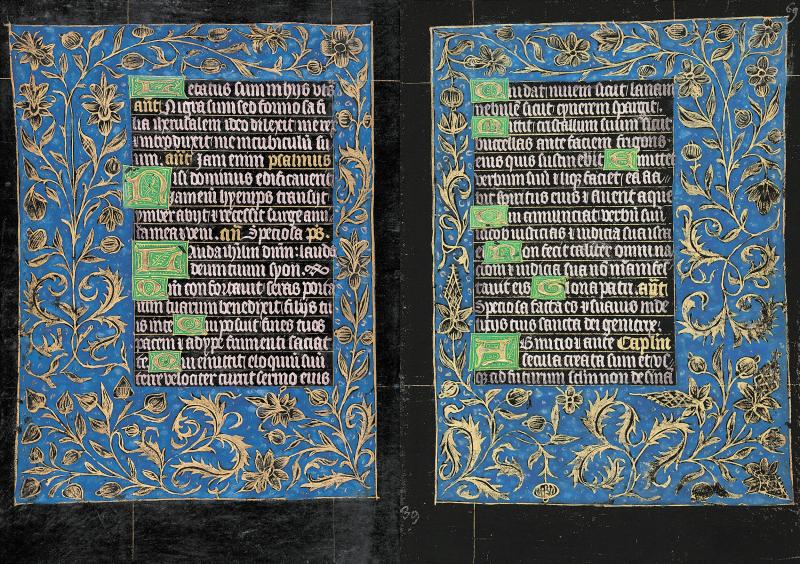 Letatus sum in hys que
ant Nigra sum sed formosa fi
lia iherusalem ideo dilexit me rex
et introduxit me in cubiculū su
um. ant Jam enim psalmus
Nisi dominus edificaverit
Jam enī hyemps transyt
ymber abyt et recessit surge ami
ca mea et veni. an Speciosa ps.
Lauda ihrlm dnm: lauda
deum tuum syon.
Qm confortavit seras porta
rum tuarum benedixit filys tu
is in te Qui posuit fines tuos
pacem et adype frumenti saciat
te Qui emittit eloquiū suū
terre velociter currit sermo eius
Qui dat nivem sicut lanam
nebulā sicut cynerem spargit.
Mittit cristallum suum sicut
buccellas ante faciem frigoris
eius quis sustinebit Emittet
verbum suū et liquefaciet ea fla
bit spiritus eius et fluent aque
Qui annunciat verbū suū
iacob iusticias et iudicia sua isrl
Non fecit taliter omni na
cioni et iudicia sua nō manifes
tavit eis Gloria patri. ant
Speciosa facta es et suavis in de
licys tuis sancta dei genitrix.
AB inicio et ante Capl'm
secula creata sum et vsq
q ad futurum sclm non desina
39